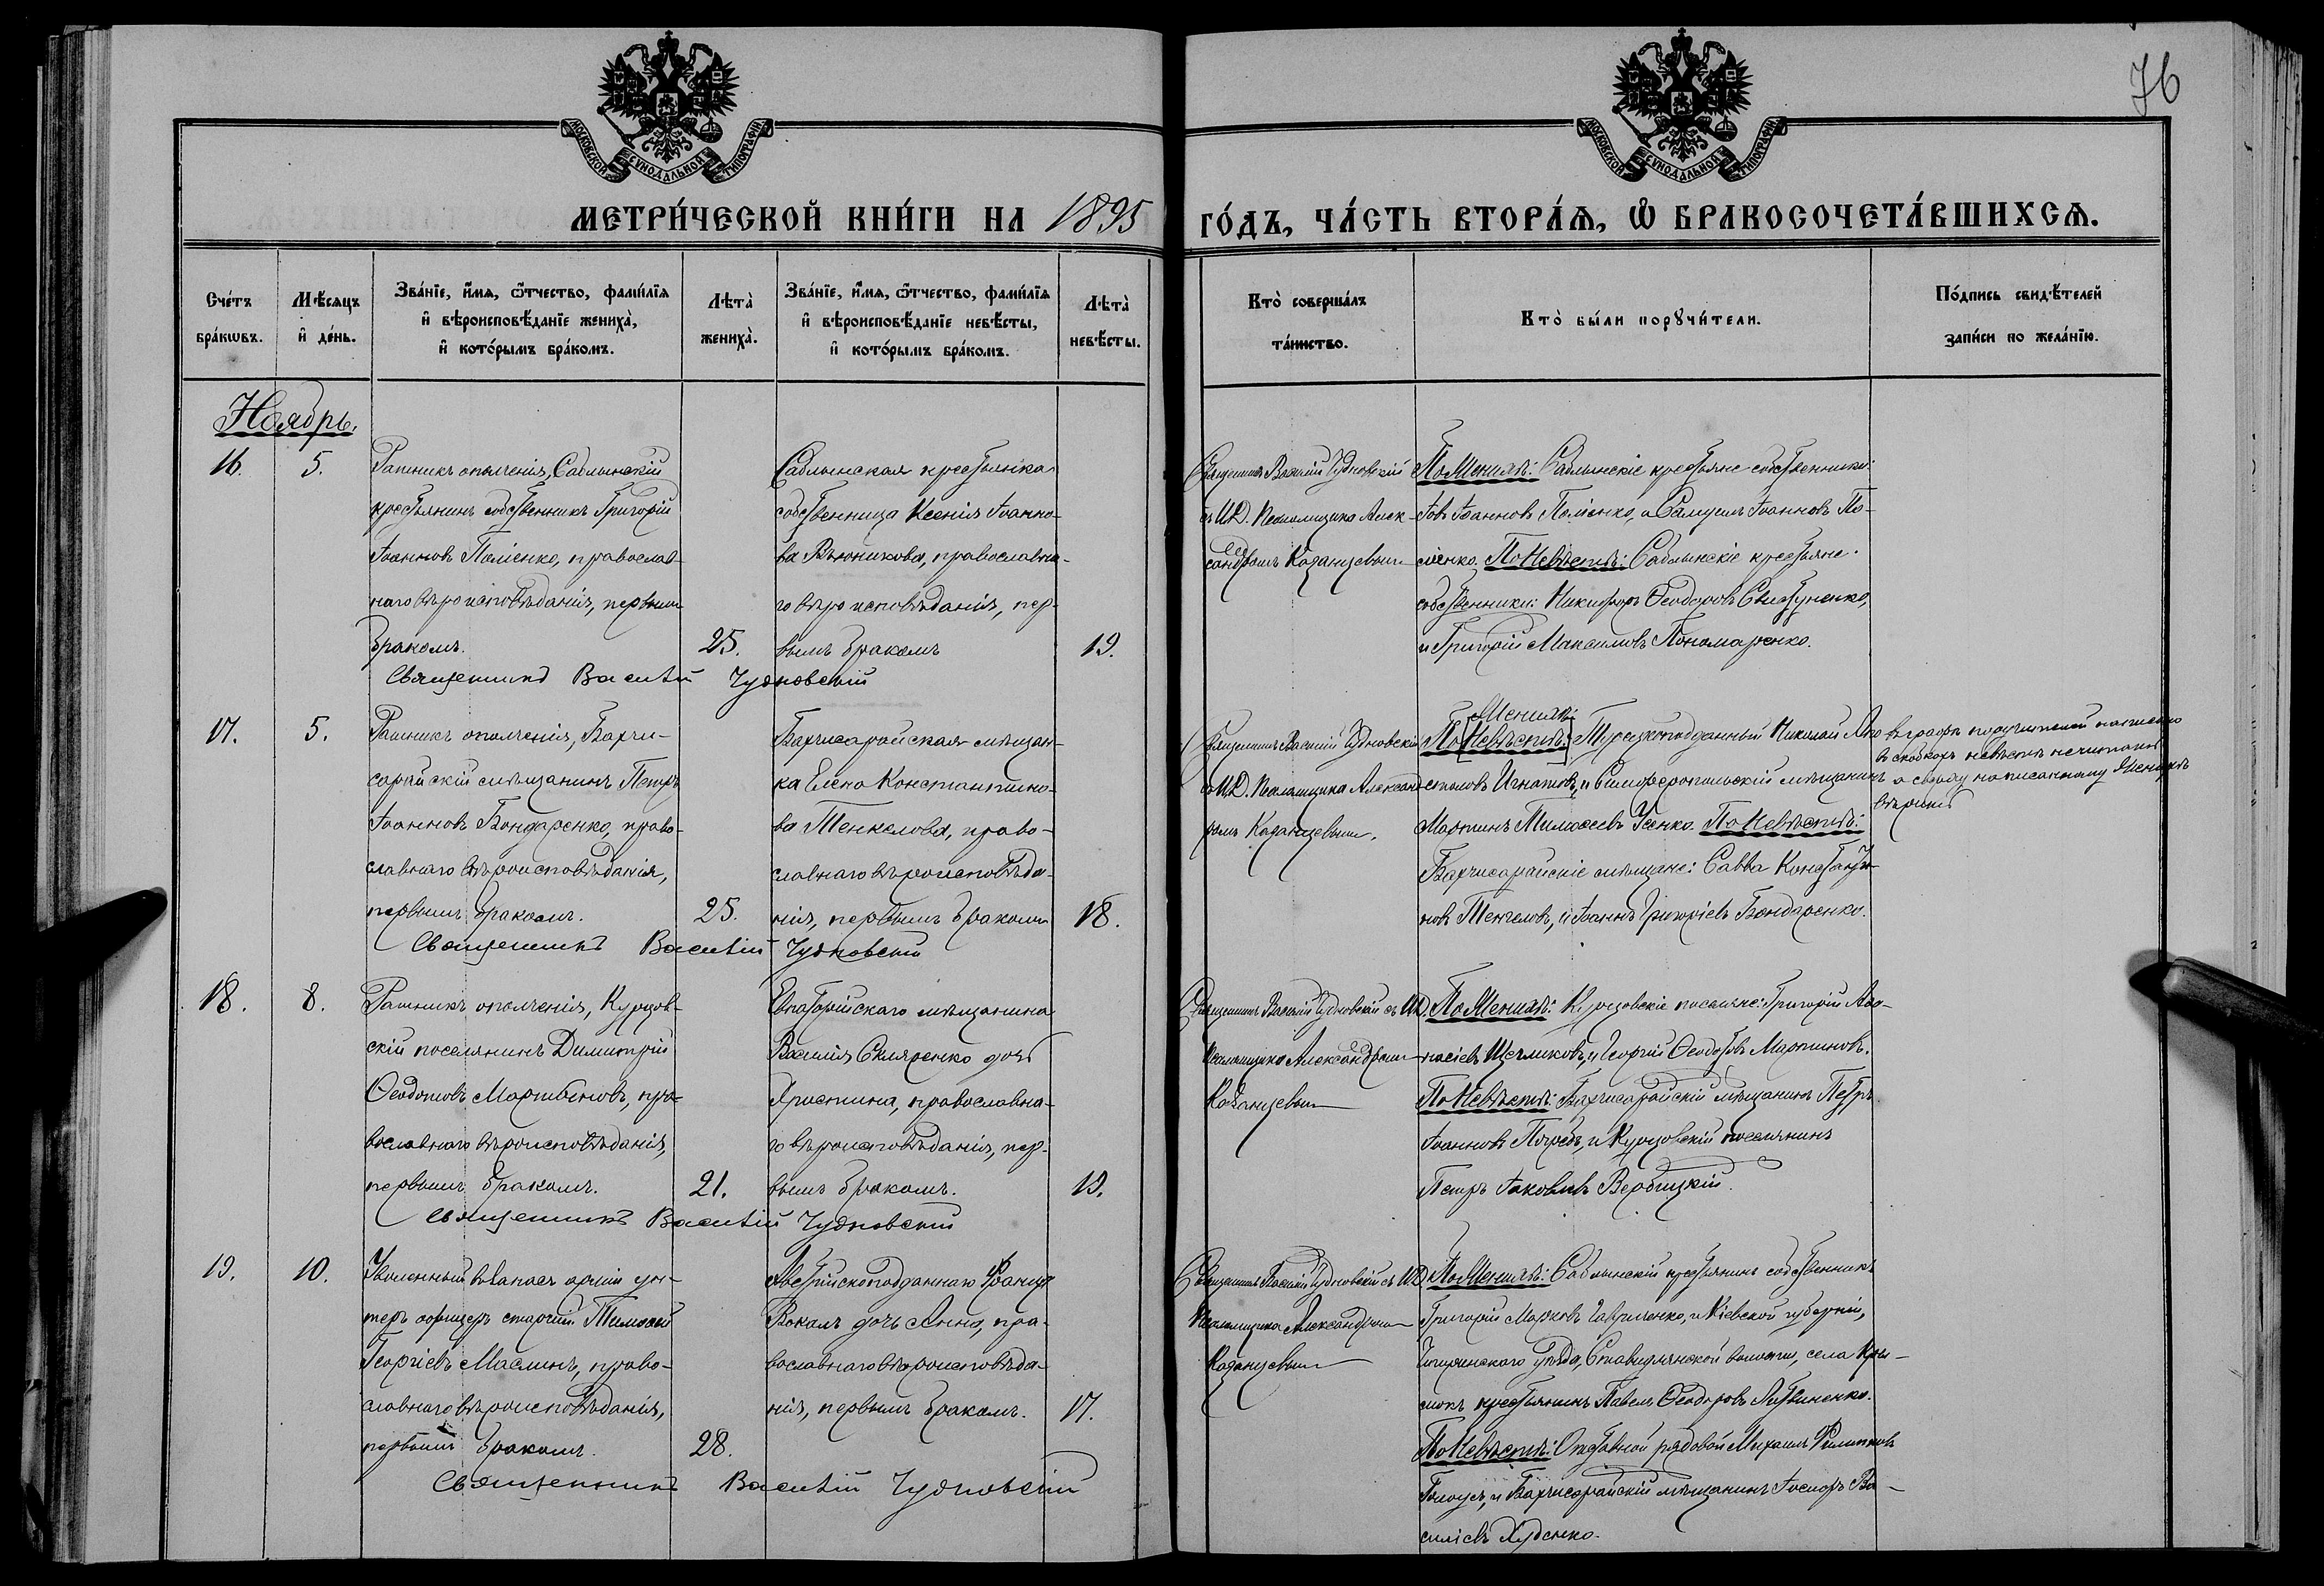 76
МОСКОВСКОЙ СѴНОДАЛЬНОЙ ТИПОГРАФІИ
МОСКОВСКОЙ СѴНОДАЛЬНОЙ ТИПОГРАФІИ
МЕТРИ́ЧЕСКОЙ КНИ́ГИ НА 1895 ГО́ДЪ, ЧА́СТЬ ВТОРА́Ѧ, Ѡ҆ БРАКОСОЧЕТА́ВШИХСѦ.
Сче́тъ
бра́кѡвъ.
Мѣ́сяцъ
и҆ де́нь.
Зва́нїе, и҆́мя, ѻ҆́тчество, фами́лїя
и҆ вѣроисповѣ́данїе жениха̀,
и҆ кото́рымъ бра́комъ.
Лѣта̀
жениха̀.
Зва́нїе, и҆́мя, ѻ҆́тчество, фами́лїя
и҆ вѣроисповѣ́данїе невѣ́сты,
и҆ кото́рымъ бра́комъ.
Лѣта̀
невѣ́сты.
Кто̀ соверша́лъ
та́инство.
Кто̀ бы́ли порꙋчи́тели.
По́дпись свидѣ́телей
за́писи по жела́нїю.
Ноябрь.
16. 5.
Ратникъ ополченія, Саблынскій
крестьянинъ собственникъ Григорій
Іоанновъ Паліенко, православ-
наго вѣроисповѣданія, первымъ
бракомъ.
25.
Саблынская крестьянка
собственница Ксенія Іоанно-
ва Вьюникова, православна-
го вѣроисповѣданія, пер-
вымъ бракомъ
19.
Священникъ Василій Чудновскій
съ И.Д. Псаломщика Алек-
сандромъ Казанцевымъ
По Женихѣ: Саблынскіе крестьяне собственники:
Іовъ Іоанновъ Паліенко, и Самуилъ Іоанновъ Па-
ліенко. По Невѣстѣ: Саблынскіе крестьяне
собственники: Никифоръ Ѳеодоровъ
и Григорій Максимовъ Пономаренко.
Священникъ Василій Чудновскій
17. 5.
Ратникъ ополченія, Бахчи-
сарайскій мѣщанинъ Петръ
Іоанновъ Бондаренко, право-
славнаго вѣроисповѣданія,
первымъ бракомъ.
25.
Бахчисарайская мѣщан-
ка Елена Константино-
ва Тенкелова, право-
славнаго вѣроисповѣда-
нія, первымъ бракомъ
18.
Священникъ Василій Чудновскій
съ И.Д. Псаломщика Александ-
ромъ Казанцевымъ.
Женихѣ:
По [Невѣстѣ:] Турецкоподданный Николай Апо-
столовъ Игнатовъ, и Симферопольскій мѣщанинъ
Мартинъ Тимоѳеевъ Усенко. По Невѣстѣ:
Бахчисарайскіе мѣщане: Савва Константи-
новъ Тенкеловъ, и Іоаннъ Григоріевъ Бондаренко.
въ графѣ поручителей написано
въ скобкахъ невѣстѣ не читать
а сверху написанному Женихѣ
вѣрить
Священникъ Василій Чудновскій
18. 8.
Ратникъ ополченія, Курцов-
скій поселянинъ Димитрій
Ѳеодотовъ Мартиновъ, пра-
вославнаго вѣроисповѣданія,
первымъ бракомъ.
21.
Евпаторійскаго мѣщанина
Василія Скляренко дочь
Христина, православна-
го вѣроисповѣданія, пер-
вымъ бракомъ.
19.
Священникъ Василій Чудновскій съ И.Д.
Псаломщика Александромъ
Казанцевымъ
По Женихѣ: Курцовскіе поселяне: Григорій Аѳа-
насіевъ Щегликовъ, и Георгій Ѳеодотовъ Мартиновъ.
По Невѣстѣ: Бахчисарайскій мѣщанинъ Петръ
Іоанновъ и Курцовскій поселянинъ
Петръ Іаковлевъ Вербицкій.
Священникъ Василій Чудновскій
19. 10.
Уволенный въ запасъ арміи ун-
теръ офицеръ старшій Тимоѳей
Георгіевъ Маслинъ, право-
славнаго вѣроисповѣданія,
первымъ бракомъ.
28.
Австрійскоподданнаго Франца
Вокалъ дочь Анна, пра-
вославнаго вѣроисповѣда-
нія, первымъ бракомъ.
17.
Священникъ Василій Чудновскій съ И.Д.
Псаломщика Александромъ
Казанцевымъ
По Женихѣ: Саблынскій крестьянинъ собственникъ
Григорій Марковъ Гавриленко, и Кіевской губерніи,
Чигиринскаго уѣзда, Ставидлянской волости, села
крестьянинъ Павелъ Ѳеодоровъ Литвиненко.
По Невѣстѣ: Отставной рядовой Михаилъ Филиповъ
и Бахчисарайскій мѣщанинъ Іосифъ Ва-
силіевъ Худенко.
Священникъ Василій Чудновскій